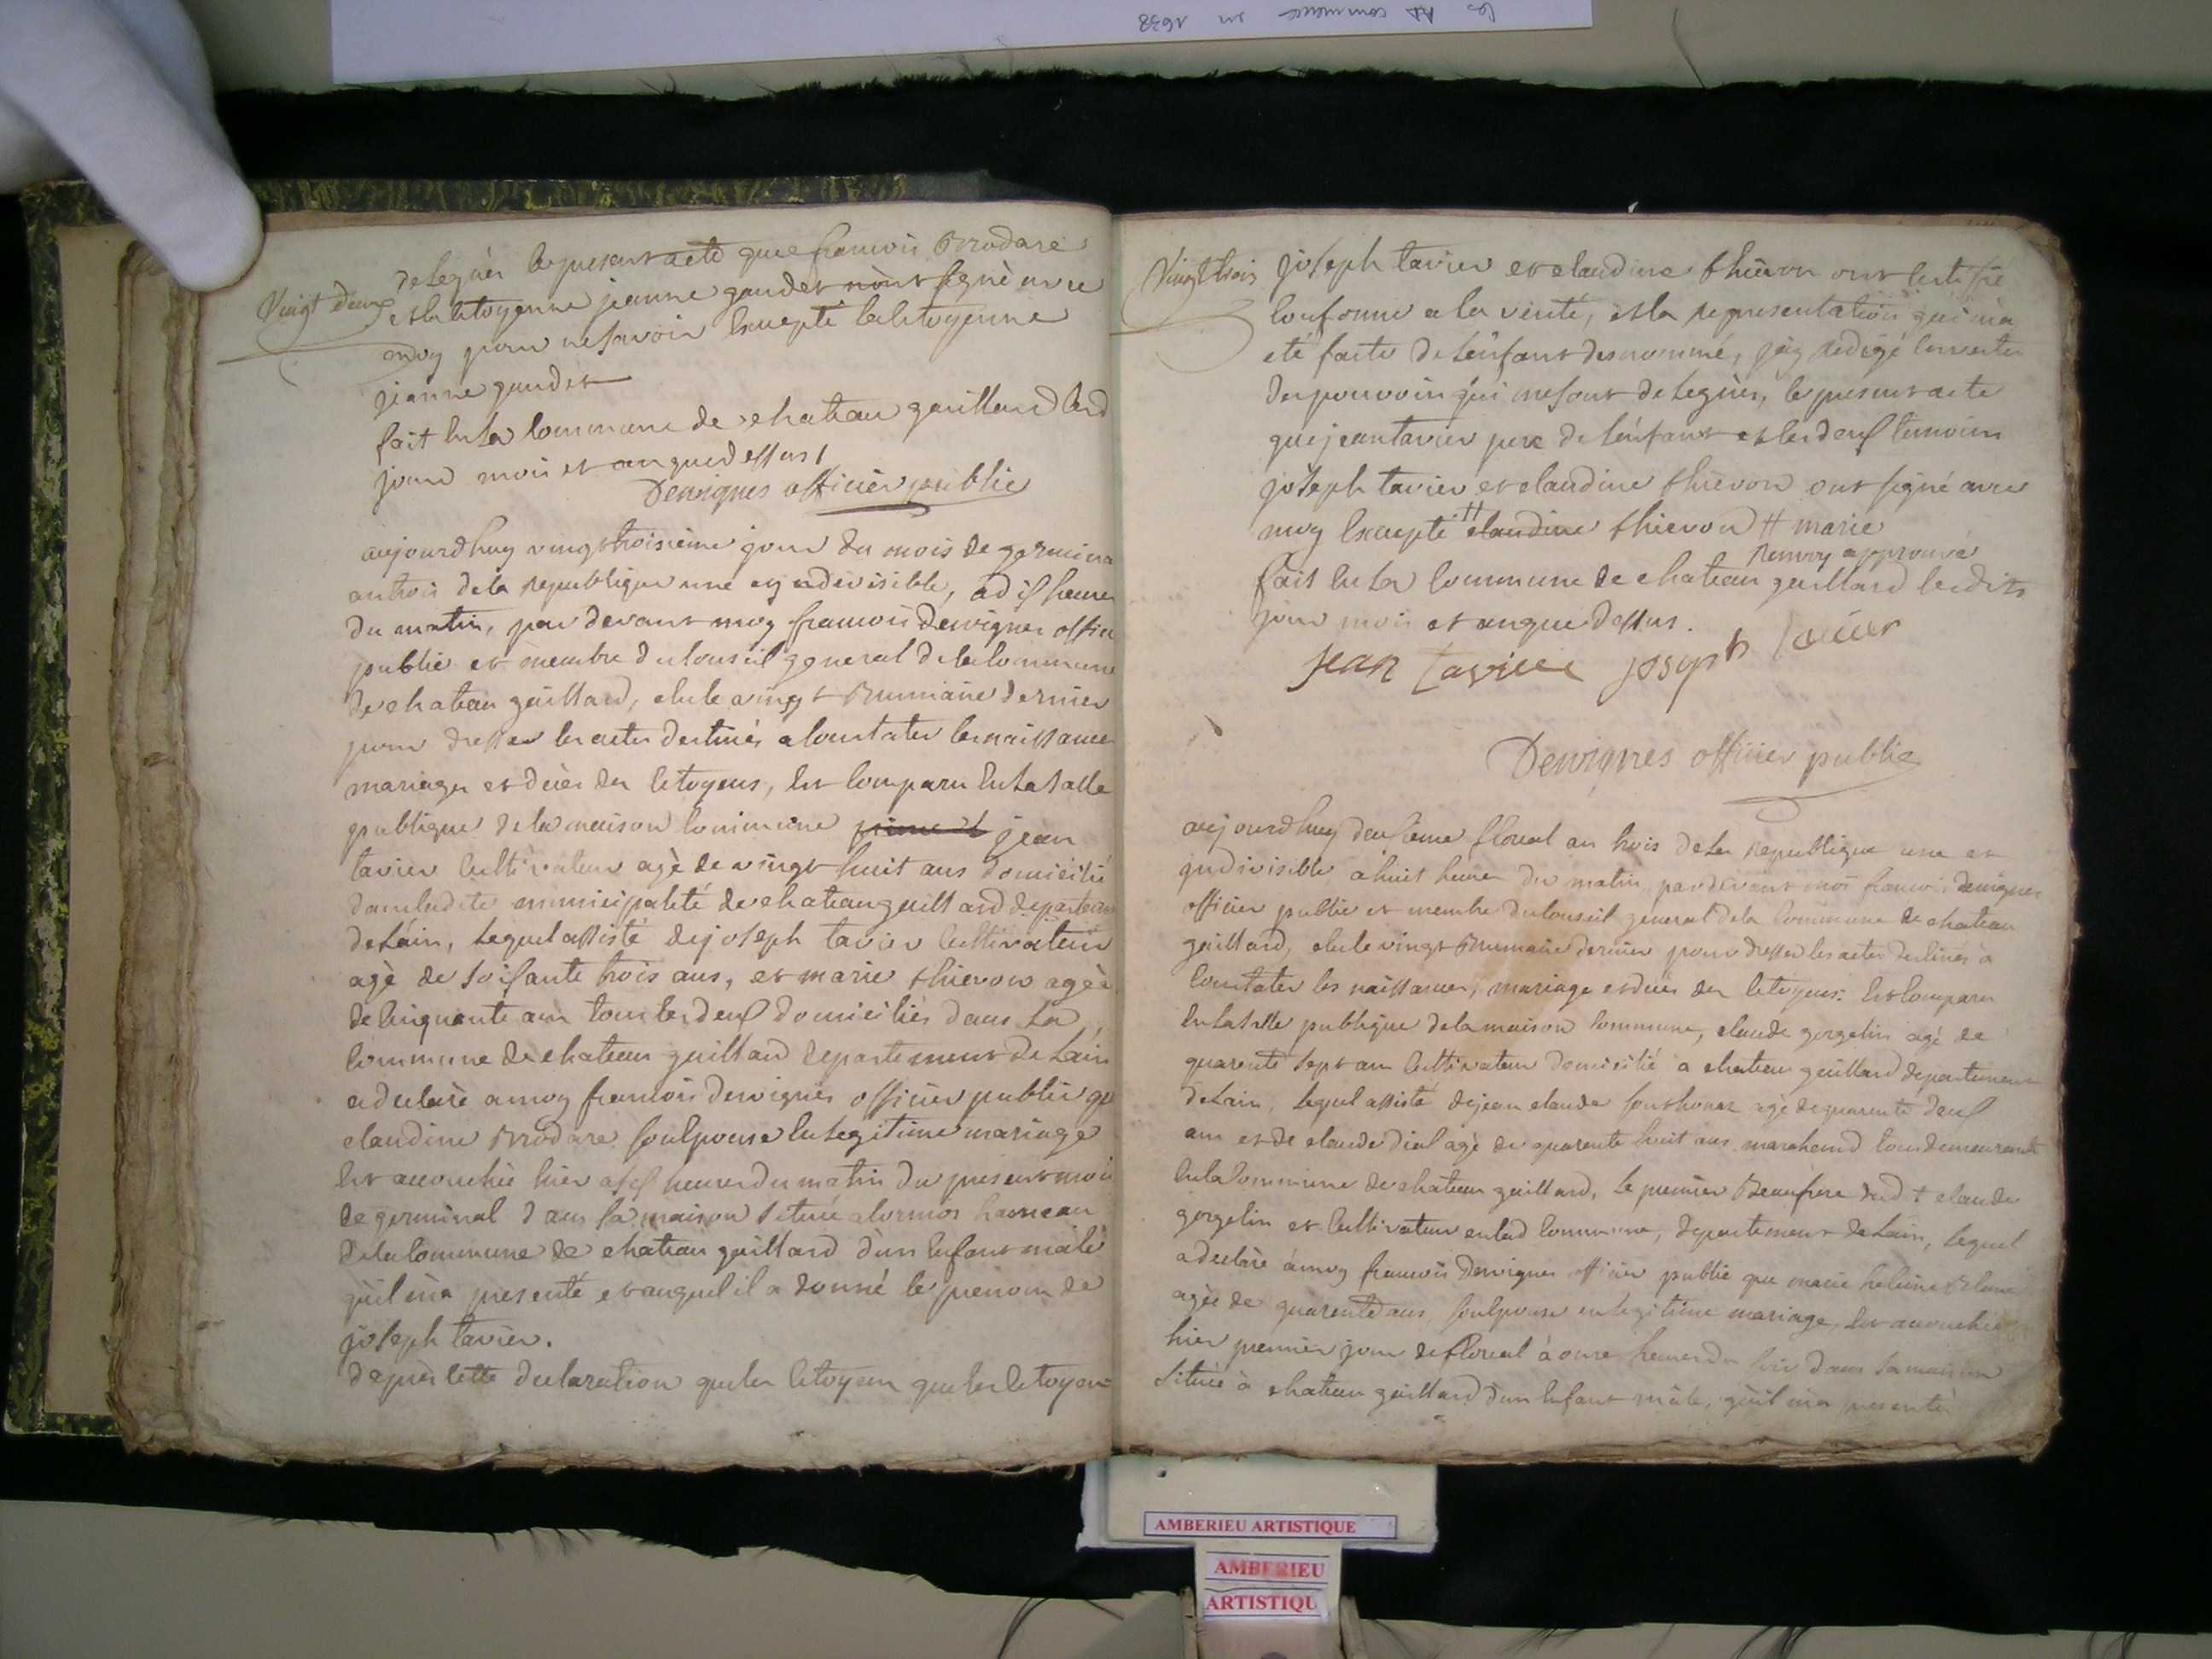 les AD commence en 1638
Vingt deux
delegués le present acte que francois Brodare
et la citoyenne jeanne gaudet n'ont signé avec
moy pour ne savoir excepté la citoyenne
jeanne gaudet
fait en la commune de chateau gaillard led
jour mois et an que dessus
Dervignes officier public
aujourdhuy vingt troisieme jour du mois de germina
an trois de la republique une et indivisible, a dix heures
du matin, par devant moy francois Dervignes offici
public et membre du conseil general de la commune
de chateau gaillard, elu le vingt Brumaire dernier
pour dresser les actes destinés a constater les naissances
mariages et décès des citoyens, est comparu en la salle
publique de la maison commune jean
tavier cultivateur agé de vingt huit ans domicilié
dans ladite municipalité de chateau gaillard departem
de Lain, lequel assisté de joseph tavier cultivateur
agé de soixante trois ans, et marie thievon agée
de cinquante ans tous les deux domiciliés dans la
commune de chateau gaillard departement de Lain
a declaré a moy francois dervignes officier public que
claudine Brodare son epouse en legitime mariage
est accouchée hier a six heures du matin du present mois
de germinal dans sa maison située a cormos hameau
de la commune de chateau gaillard d'un enfant male
qu'il m'a presenté et auquel il a donné le prenom de
joseph tavier.
d'aprés cette declaration que les citoyens que les citoyens
Vingt trois
joseph tavier et claudine thievon ont certifié
conforme a la verité, et la representation qui m'a
eté faite de l'enfant denommé, j'ay redigé en vertu
des pouvoirs qui me sont delegués, le present acte
que jean tavier pere de l'enfant et les deux temoins
joseph tavier et claudine thievon ont signé avec
moy excepté # claudine thievon # marie
renvoy approuvé
fait en la commune de chateau gaillard lesdits
jour mois et an que dessus.
jean tavier joseph tavier
Dervignes officier public
aujourdhuy deuxieme floreal an trois de la republique une et
indivisible a huit heures du matin pardevant moi francois dervignes
officier public et membre du conseil general de la commune de chateau
gaillard, elu le vingt Brumaire dernier pour dresser les actes destinés à
constater les naissances, mariage et décés des citoyens: est comparu
en la salle publique de la maison commune, claude gorgelin agé de
quarente sept ans cultivateur domicilié a chateau gaillard departement
de Lain, lequel assisté de jean claude agé de quarente deux
ans et de claude dial agé de quarente huit ans marchand tous demeurant
en la commune de chateau gaillard, le premier Beaufrere dudt claude
gorgelin et cultivateur en lad commune, departement de Lain, lequel
a declaré à moy francois Dervignes officier public que marie heleine
agée de quarente ans, son epouse en legitime mariage, est accouchée
hier premier jour de floreal à onze heures du soir dans sa maison
située à chateau gaillard d'un enfant mâle, qu'il m'a presenté
AMBERIEU ARTISTIQUE
AMBERIEU
ARTISTIQU